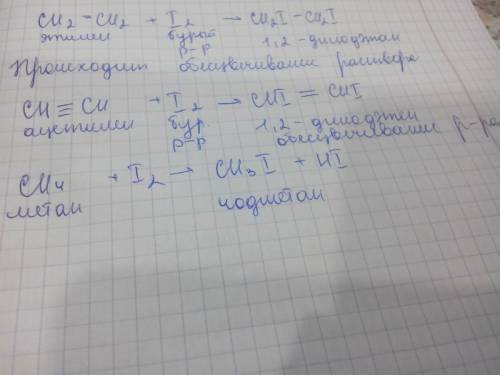 CH2-CH2 + I2 → CH2I-CH2I
этилен бурый 1,2-дииодэтан
р-р
Происходит обесцвечивание раствора
CH≡CH + I2 → CHI=CHI
ацетилен бур. 1,2-дииодэтен
р-р обесцвечивание р-ра
CH4 + I2 → CH3I + HI
метан иодметан